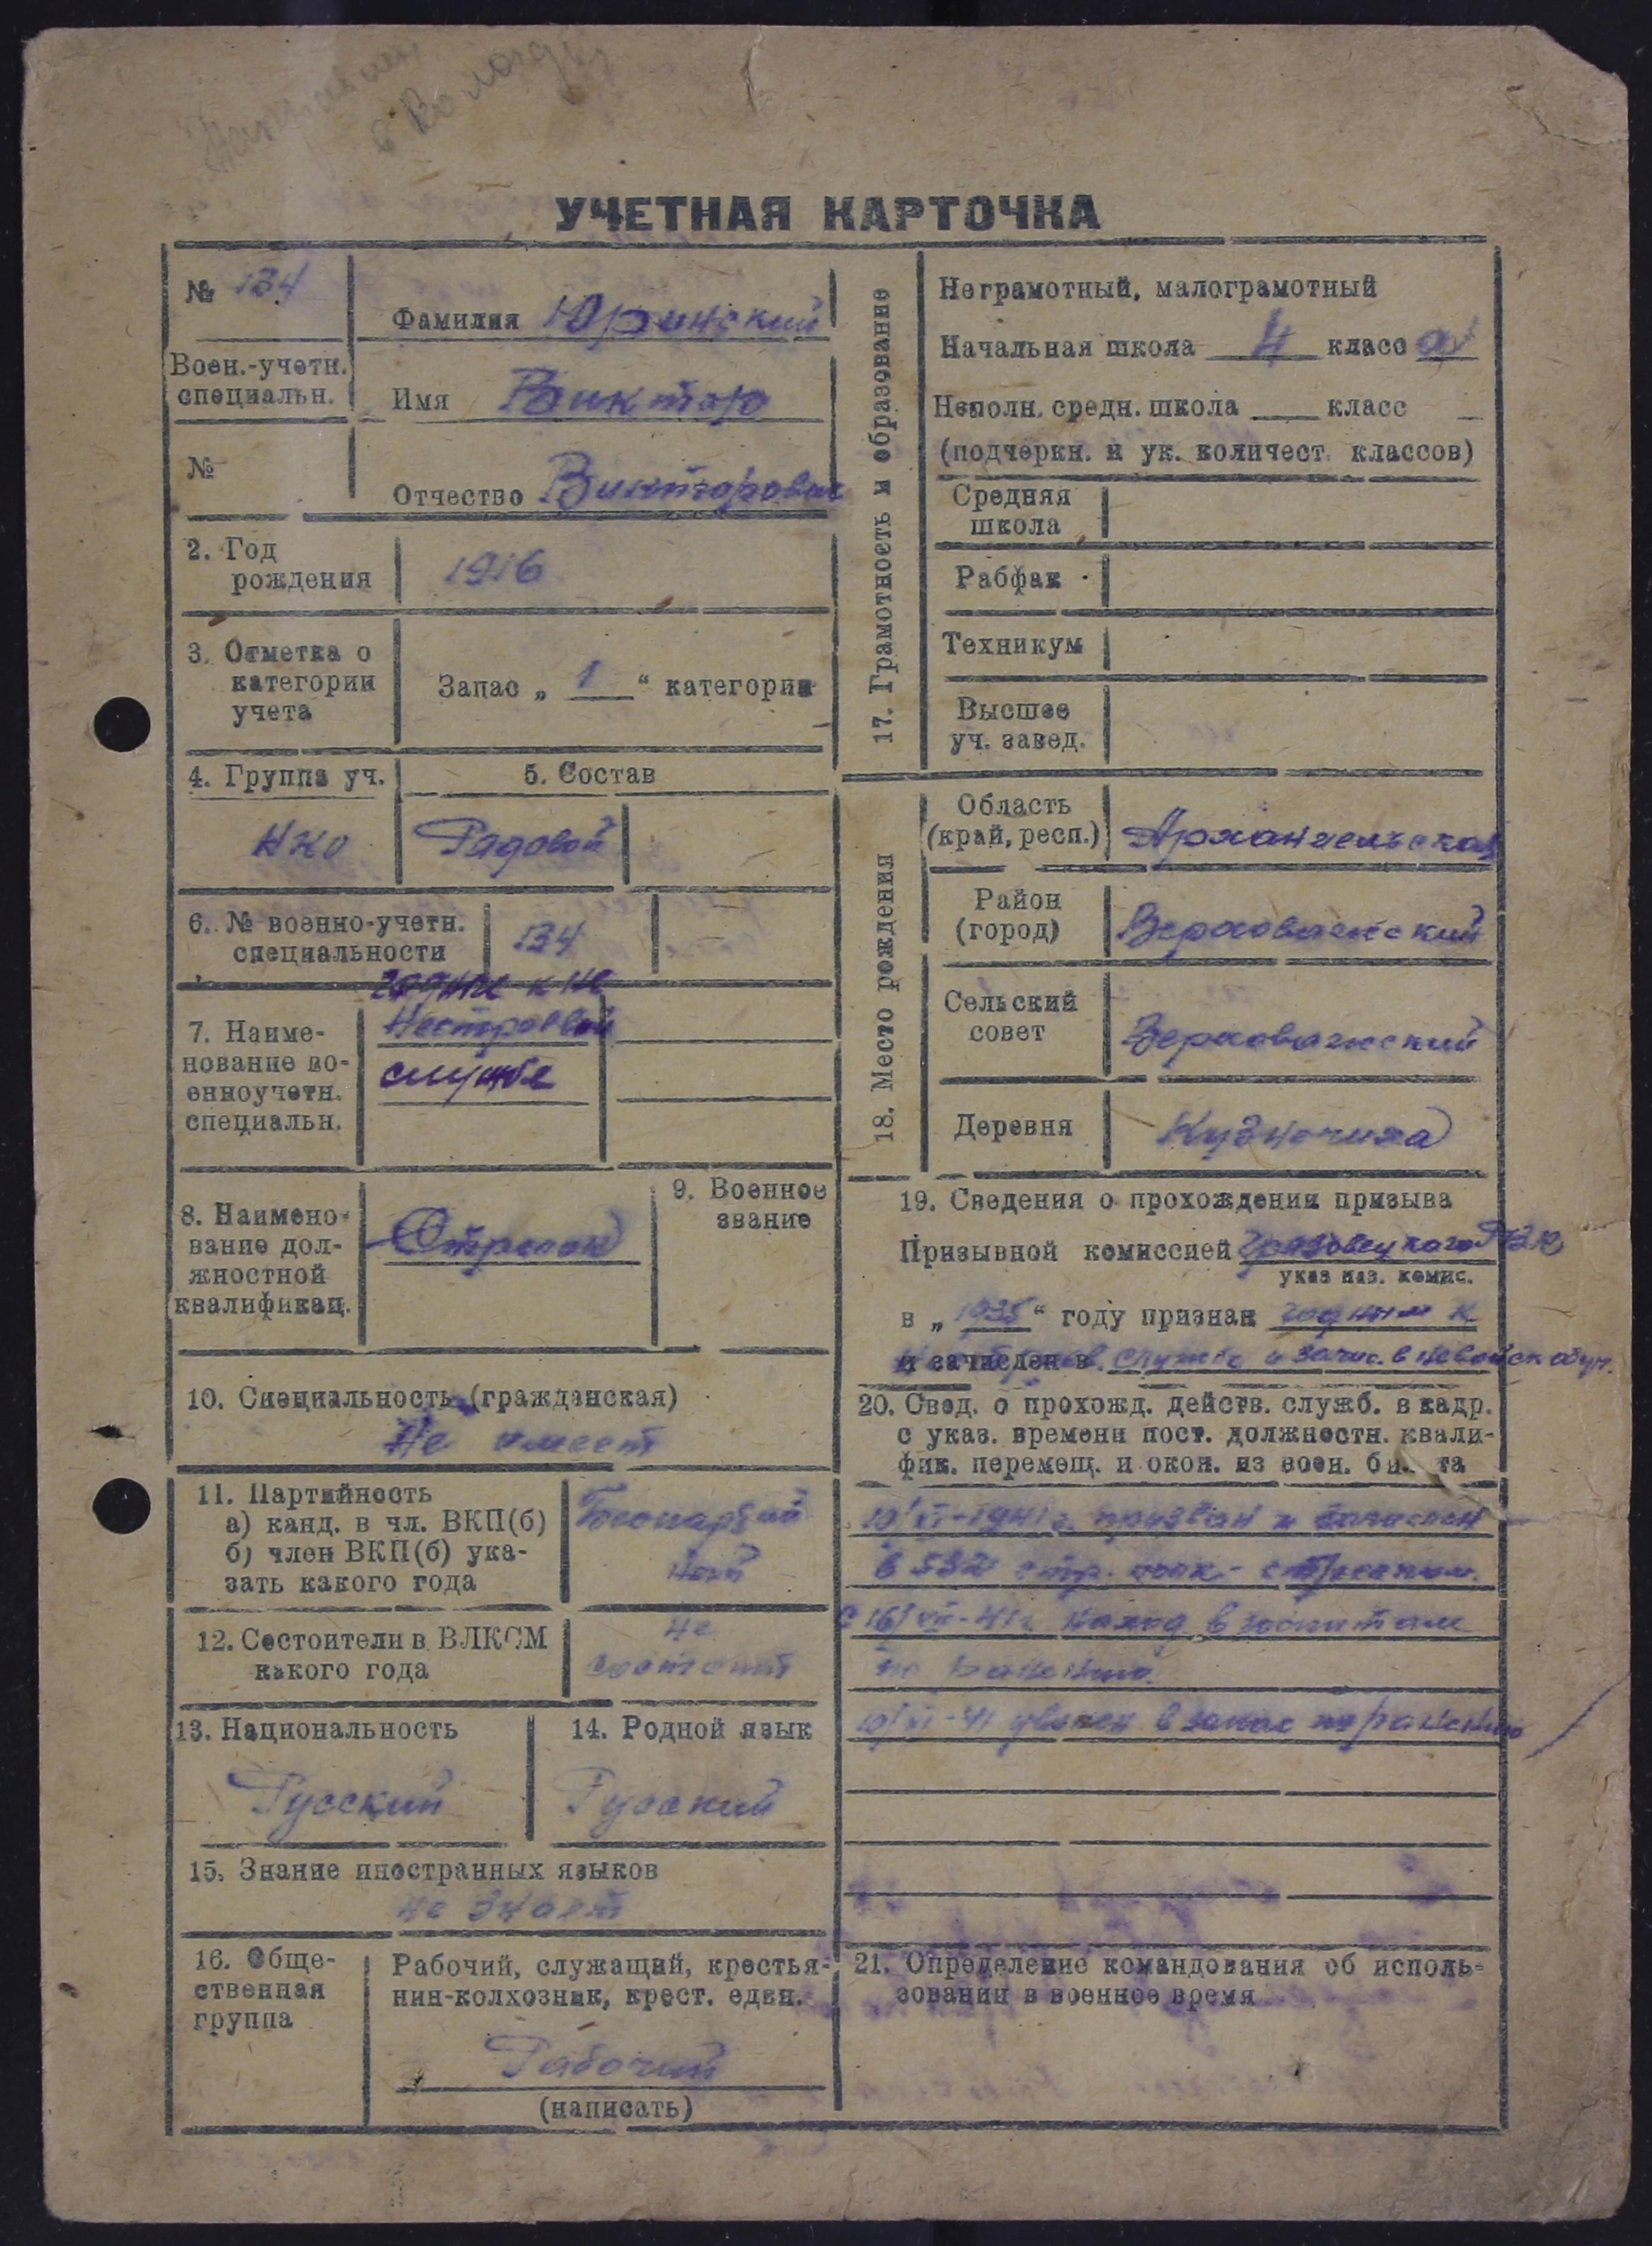 в Вологду
УЧЕТНАЯ КАРТОЧКА
№ 134
Воен.-учетн.
специальн.
№
Фамилия Юринский
Имя Виктор
Отчество Викторович
2. Год
рождения
1916
3. Отметка о
категории
учета
Запас „ 1 “ категории
4. Группа уч.
НКО
5. Состав
Рядовой
6. № военно-учетн.
специальности
134
7. Наиме-
нование во-
енноучетн.
специальн.
Нестроевой
службе
8. Наимено-
вание дол-
жностной
квалификац.
Стрелок
9. Военное
звание
10. Специальность (гражданская)
Не имеет
11. Партийность
а) канд. в чл. ВКП(б)
б) член ВКП(б) ука-
зать какого года
12. Состоит ли в ВЛКСМ
какого года
Не
состоит
13. Национальность
Русский
14. Родной язык
Русский
15. Знание иностранных языков
не знает
16. Обще-
ственная
группа
Рабочий, служащий, крестья-
нин-колхозник, крест. един.
Рабочий
(написать)
17. Грамотность и образование
Неграмотный, малограмотный
Начальная школа 4 класс а
Неполн. средн. школа ____ класс
(подчеркн. и ук. количест. классов)
Средняя
школа
Рабфак
Техникум
Высшее
уч. завед.
18. Место рождения
Область
(край, респ.)
Архангельская
Район
(город)
Верховажский
Сельский
совет
Верховажский
Деревня
19. Сведения о прохождении призыва
Призывной комиссией Грязовецкого РВК
указ наз. комис.
в „ 1938 “ году признан годным к
и зачислен в службе и зачис. в невойск обуч.
20. Свед. о прохожд. действ. служб. в кадр.
с указ. времени пост. должностн. квали-
фик. перемещ. и окон. из воен. билета
19/VI-1941 г. призван и зачислен
в 532 стр. полк - стрелком.
С 16/VII-41г. наход. в госпитале
по ранению.
уволен в запас по ранению
21. Определение командования об исполь-
зовании в военное время